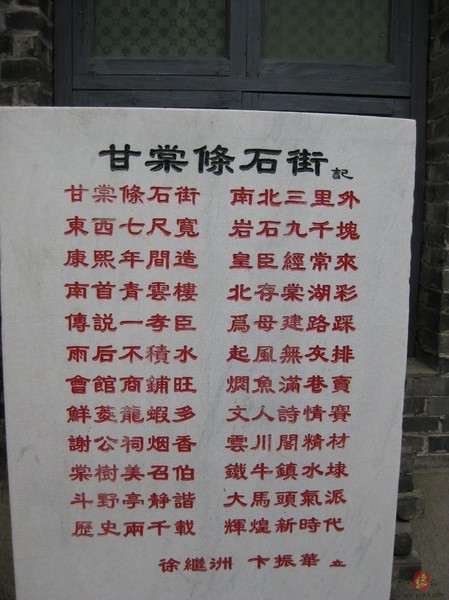 甘棠條石街記
甘棠條石街 南北三里外
東西七尺寬 岩石九千塊
康熙年間造 皇臣經常來
南首青雲樓 北存棠湖彩
傳説一孝臣 爲母建路踩
雨后不積水 起風無灰排
會館商鋪旺 燜魚滿巷賣
鮮菱龍蝦多 文人詩情賽
謝公祠烟香 雲川閣精材
棠樹美召伯 鐵牛鎮水埭
斗野亭静諧 大馬頭氣派
歷史兩千載 輝煌新時代
徐繼洲 卞振華 立